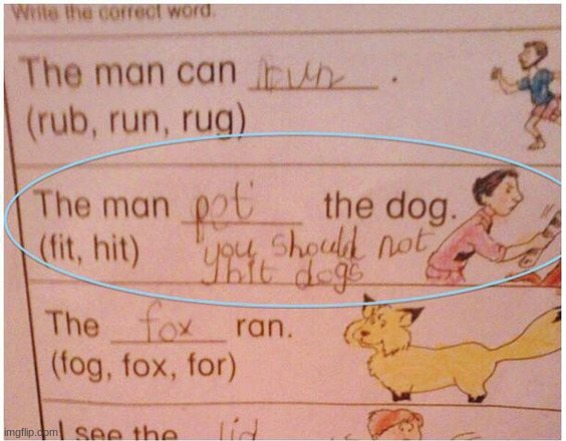 Write the correct word.
The man can run.
(rub, run, rug)
The man pot the dog.
(fit, hit) you should not
hit dogs
The fox ran.
(fog, fox, for)
I see the lid
imgflip.com